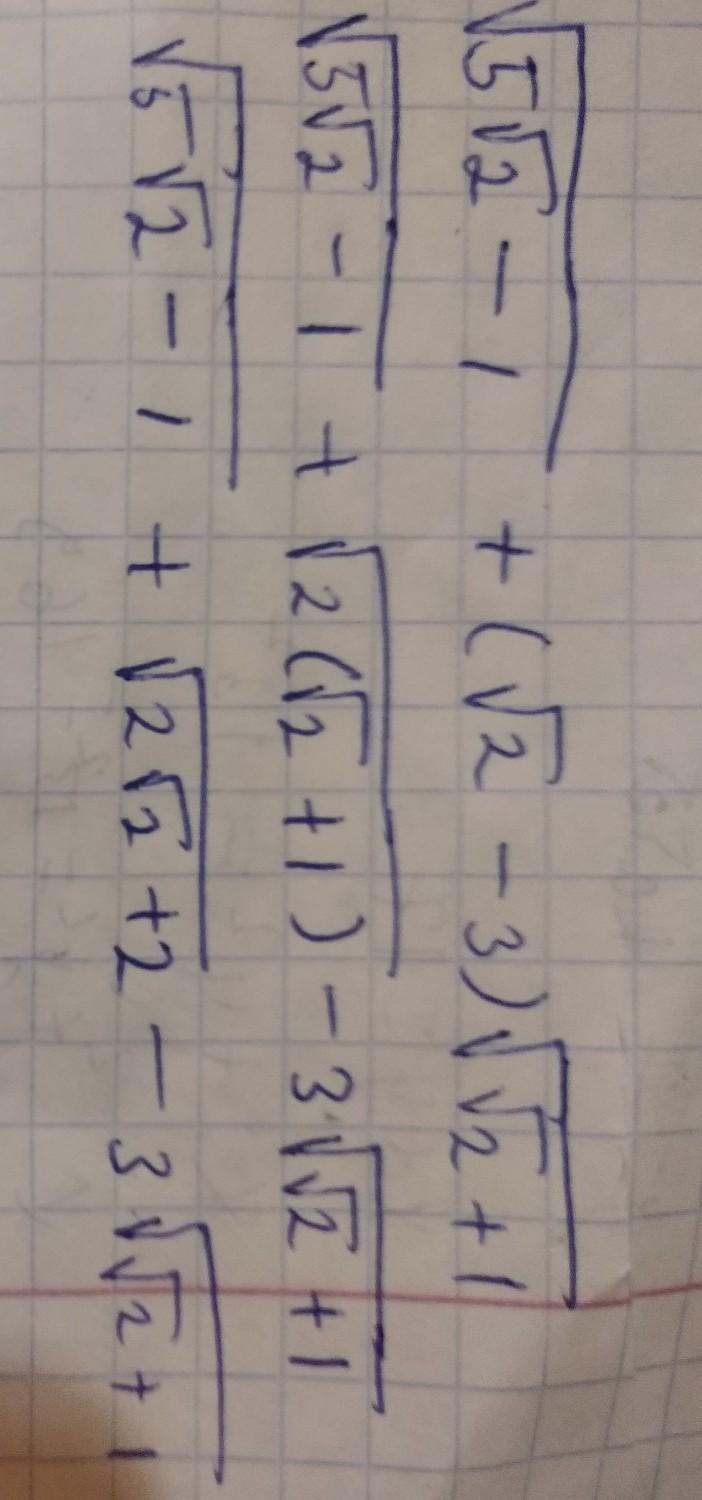 √(5√2 - 1) + (√2 - 3)√(√2 + 1)
√(5√2 - 1) + √(2(√2 + 1)) - 3√(√2 + 1)
√(5√2 - 1) + √(2√2 + 2) - 3√(√2 + 1)